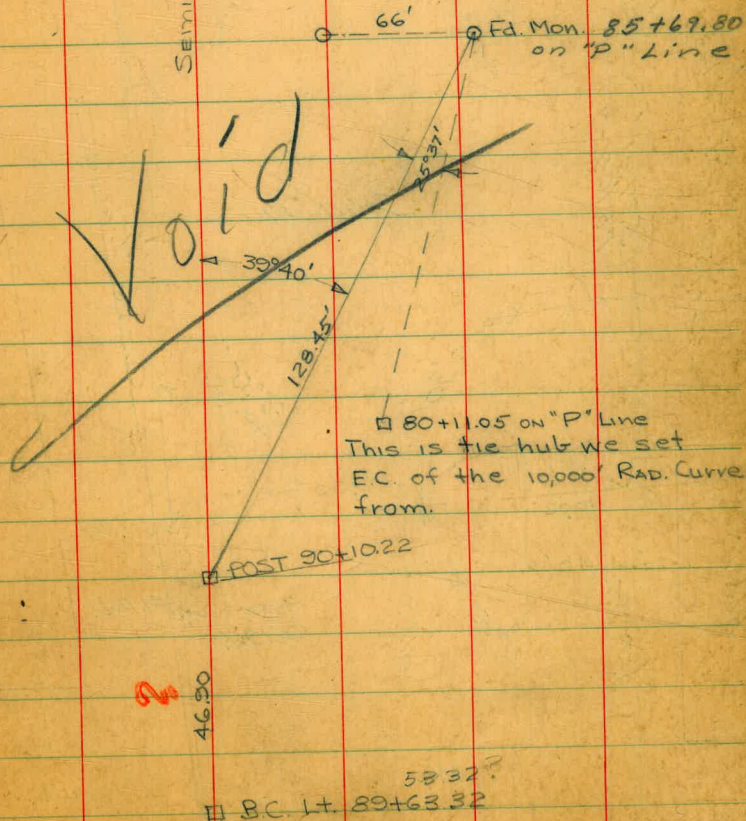 Semi
66'
Fd. Mon. 85+69.80
on "P" Line
Void
25°37'
39°40'
128.45'
80+11.05 ON "P" Line
This is tie hub we set
E.C. of the 10,000' RAD. Curve
from.
POST 90+10.22
46.90
53 32?
B.C. Lt. 89+63.32